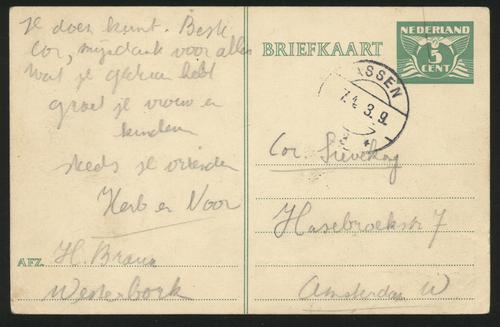 Je doen kunt. Beste
Cor, mijn dank voor alles
wat je gedaan hebt
groet je vrouw en
kinderen
steeds je vrienden
Herb en Noor
AFZ. H. Braun
Westerbork
BRIEFKAART
NEDERLAND
5
CENT
ASSEN
3.9.
Cor. Sieveking
Hasebroekstr 7
Amsterdam W